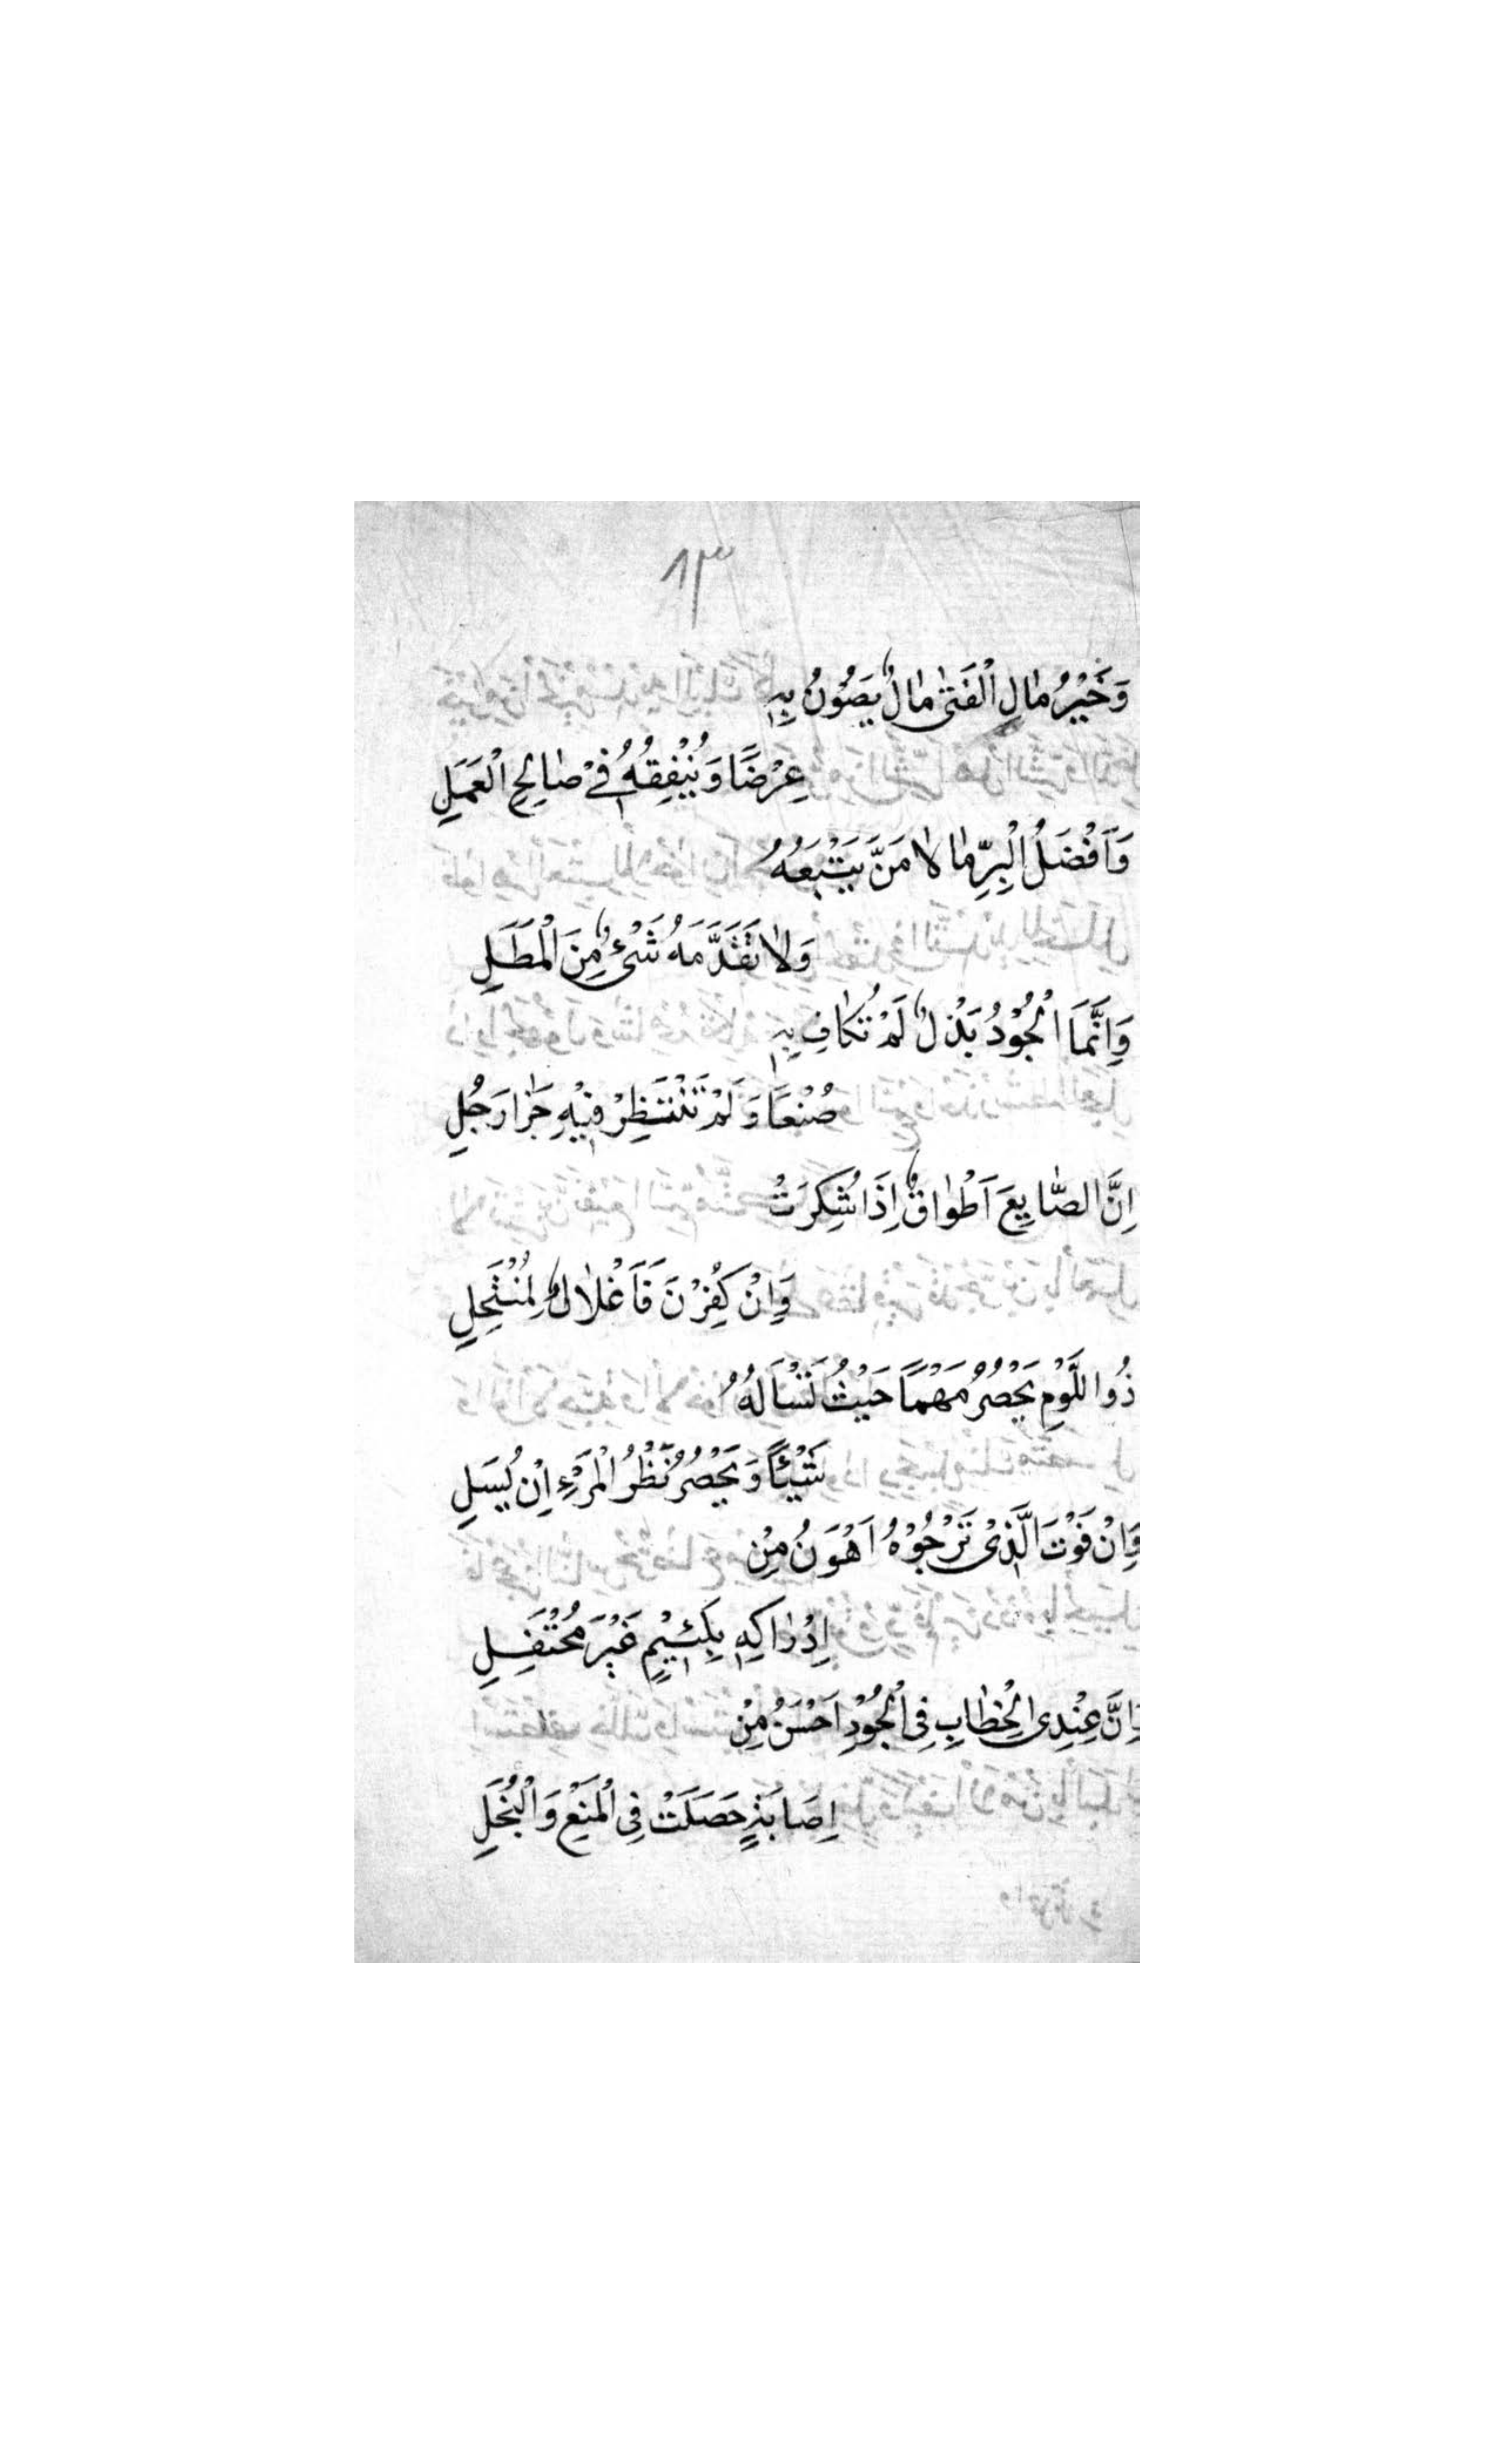 ١٣
وَخَيْرُ مٰالِ الْفَتىٰ مٰالٌ يَصُوْنُ بِهِ
عِرْضًا وَيُنْفِقُهُ فِيْ صٰالِحِ الْعَمَلِ
وَاَفْضَلُ الْبِرِّ مٰا لٰا مَنَّ يَتْبَعُهُ
وَلٰا تَقَدَّمَهُ شَيْئٌ مِنَ الْمَطَلِ
وَاِنَّمَا الْجُوْدُ بَذْلٌ لَمْ تُكٰافِ بِهِ
صُنْعًا وَلَمْ تَنْتَظِرْ فِيْهِ جَزٰا رَجُلِ
اِنَّ الصَّايِعَ اَطْوٰاقٌ اِذَا شُكِرَتْ
وَاِنْ كُفِرْنَ فَاَغْلٰالٌ لِمُنْتَحِلِ
ذُوا للَّوْمِ يَحْصُرُ مَهْمًا حَيْثُ تَسْاَلُهُ
شَيْئًا وَيَحْصُرُ نُطْقُ الْمَرْءِ اِنْ يُسَلِ
وَاِنْ فَوْتَ الَّذِيْ تَرْجُوْهُ اَهْوَنُ مِنْ
اِدْرٰاكِهِ بِلَئِيْمٍ غَيْرَ مُحْتَفِلِ
وَاِنَّ عِنْدِى الْخِطٰابِ فِى الْجُوْدِ اَحْسَنُ مِنْ
اِصَابَةٍ حَصَلَتْ فِى الْمَنْعِ وَالْبُخَلِ